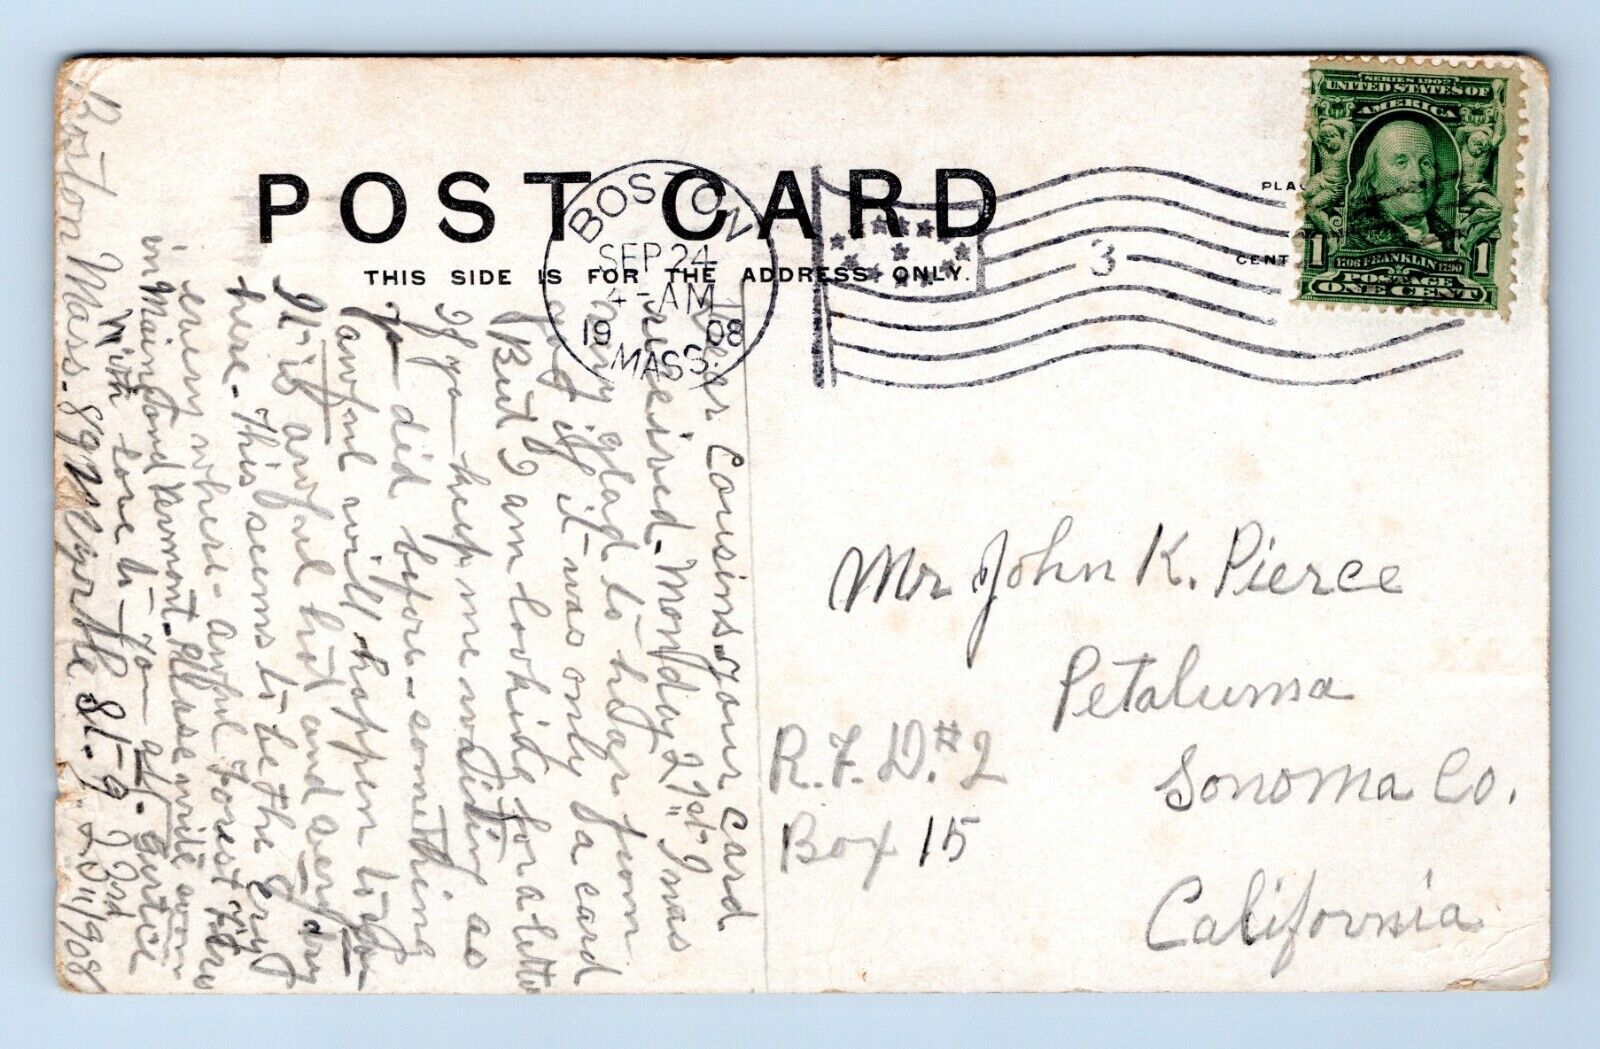 POST CARD
THIS SIDE IS FOR THE ADDRESS ONLY.
BOSTON
SEP 24
4-AM
1908
MASS.
3
PLA
CENT
SERIES 1902
UNITED STATES OF
AMERICA
1 1
1706 FRANKLIN 1790
POSTAGE
ONE CENT
Mr John K. Pierce
Petaluma
R.F.D. #2
Sonoma Co.
Box 15
California
Boston Mass. 89 Myrtle St-9. 23rd /1908
Dear Cousins-your card
received-Monday 21st" I was
very glad to hear from
you if it-was only a card
But I am looking for a letter
If you keep me waiting as
you did before-something
awful will happen to you
It is awful hot and very dry
here-This seems to be the cry
every where-awful forest fires
in Maine and Vermont-Please write soon
With love to-you all. Bertice